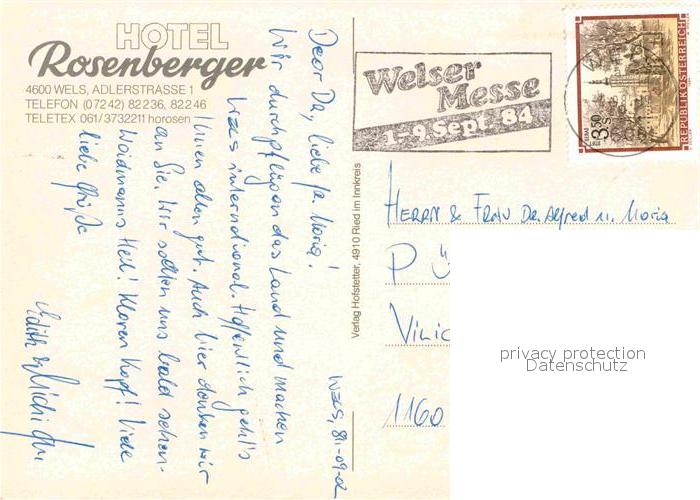 HOTEL
Rosenberger
4600 WELS, ADLERSTRASSE 1
TELEFON (07242) 82236, 82246
TELETEX 061/3732211 horosen
Welser
Messe
1-9 Sept. 84
S 3.50
REPUBLIK ÖSTERREICH
WELS, 84-09-02
Dear Da, liebe fr. Maria!
Wir durchpflügen das Land und machen
Wels international. Hoffentlich geht's
Ihnen allen gut. Auch hier denken wir
an Sie. Wir sollten uns bald sehen.
Waidmanns Heil! Klaren Kopf! Viele
liebe Grüße
Edith & Michi
Verlag Hofstetter, 4910 Ried im Innkreis
HERRN & FRAU Dr. Alfred u. Maria
P Ü
VILIC
1160
privacy protection
Datenschutz